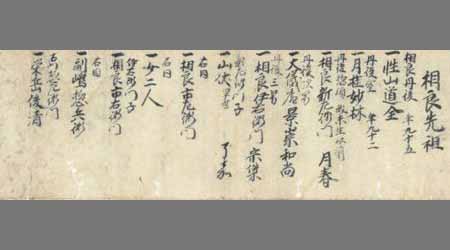 相良先祖
相良丹後 年九十五
一性山道全
丹後室 年九十二
一月桂妙林
丹後惣領
一相良新左衛門 月春
丹後次男
一大儀庵景崇和尚
丹後三男
一相良伊右衛門 宗傑
衛門子
一山伏 了嘉
右同
一相良市左衛門
右同
一女二人
伊右衛門子
一相良市右衛門
右同
一副嶋惣兵衛
衛門
一 俊清